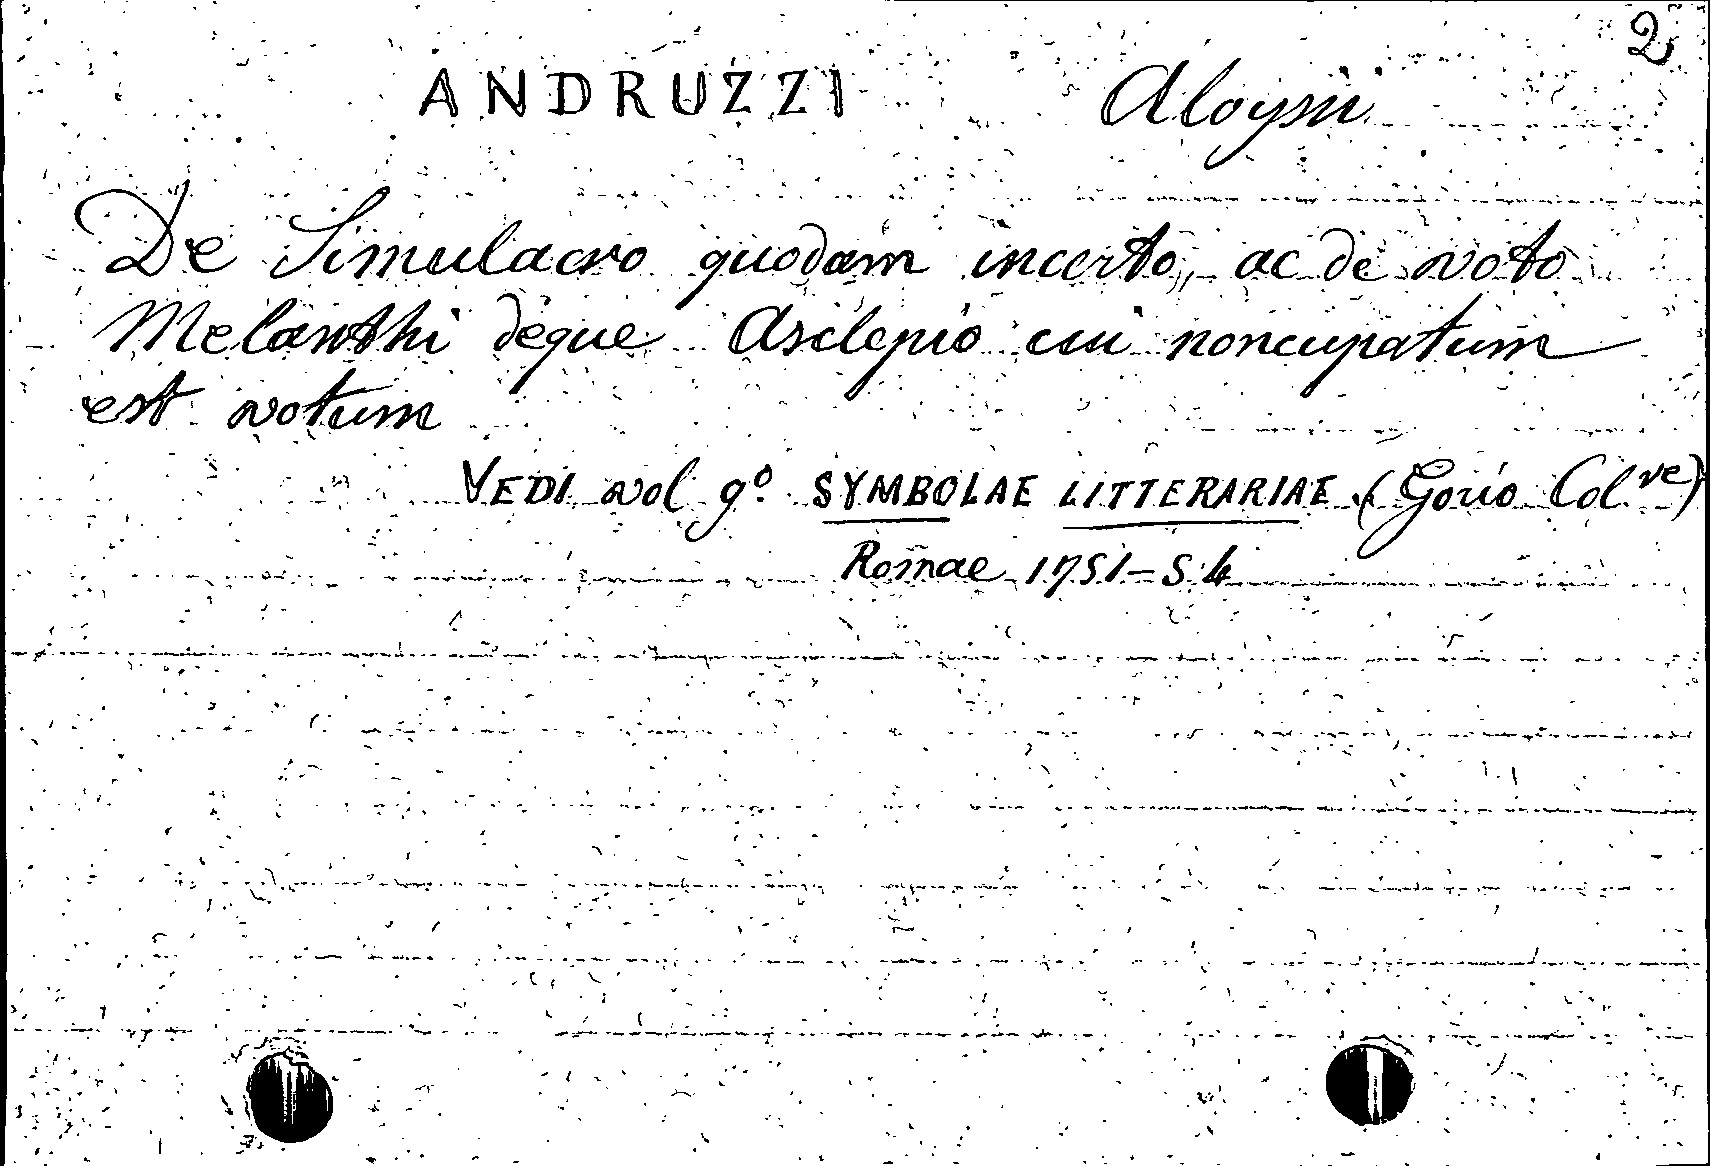 2
ANDRUZZI Aloysii
De Simulacro quodam incerto, ac de voto
Melanthi deque Asclepio cui noncupatum
est votum
VEDI vol 9º SYMBOLAE LITTERARIAE (Gorio Col.ne)
Romae 1751-54